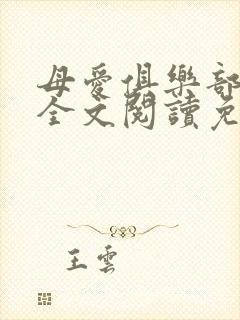 母愛俱樂部
全文閱讀免
王雲